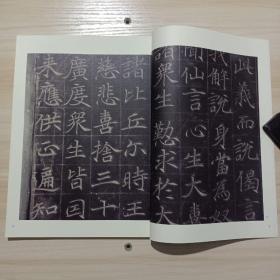 此義而說偈言
我解說身當為奴
聞仙言心生大喜
諸眾生勤求於大
諸比丘尒時王
慈悲喜捨三十
廣度眾生皆因
来應供正遍知